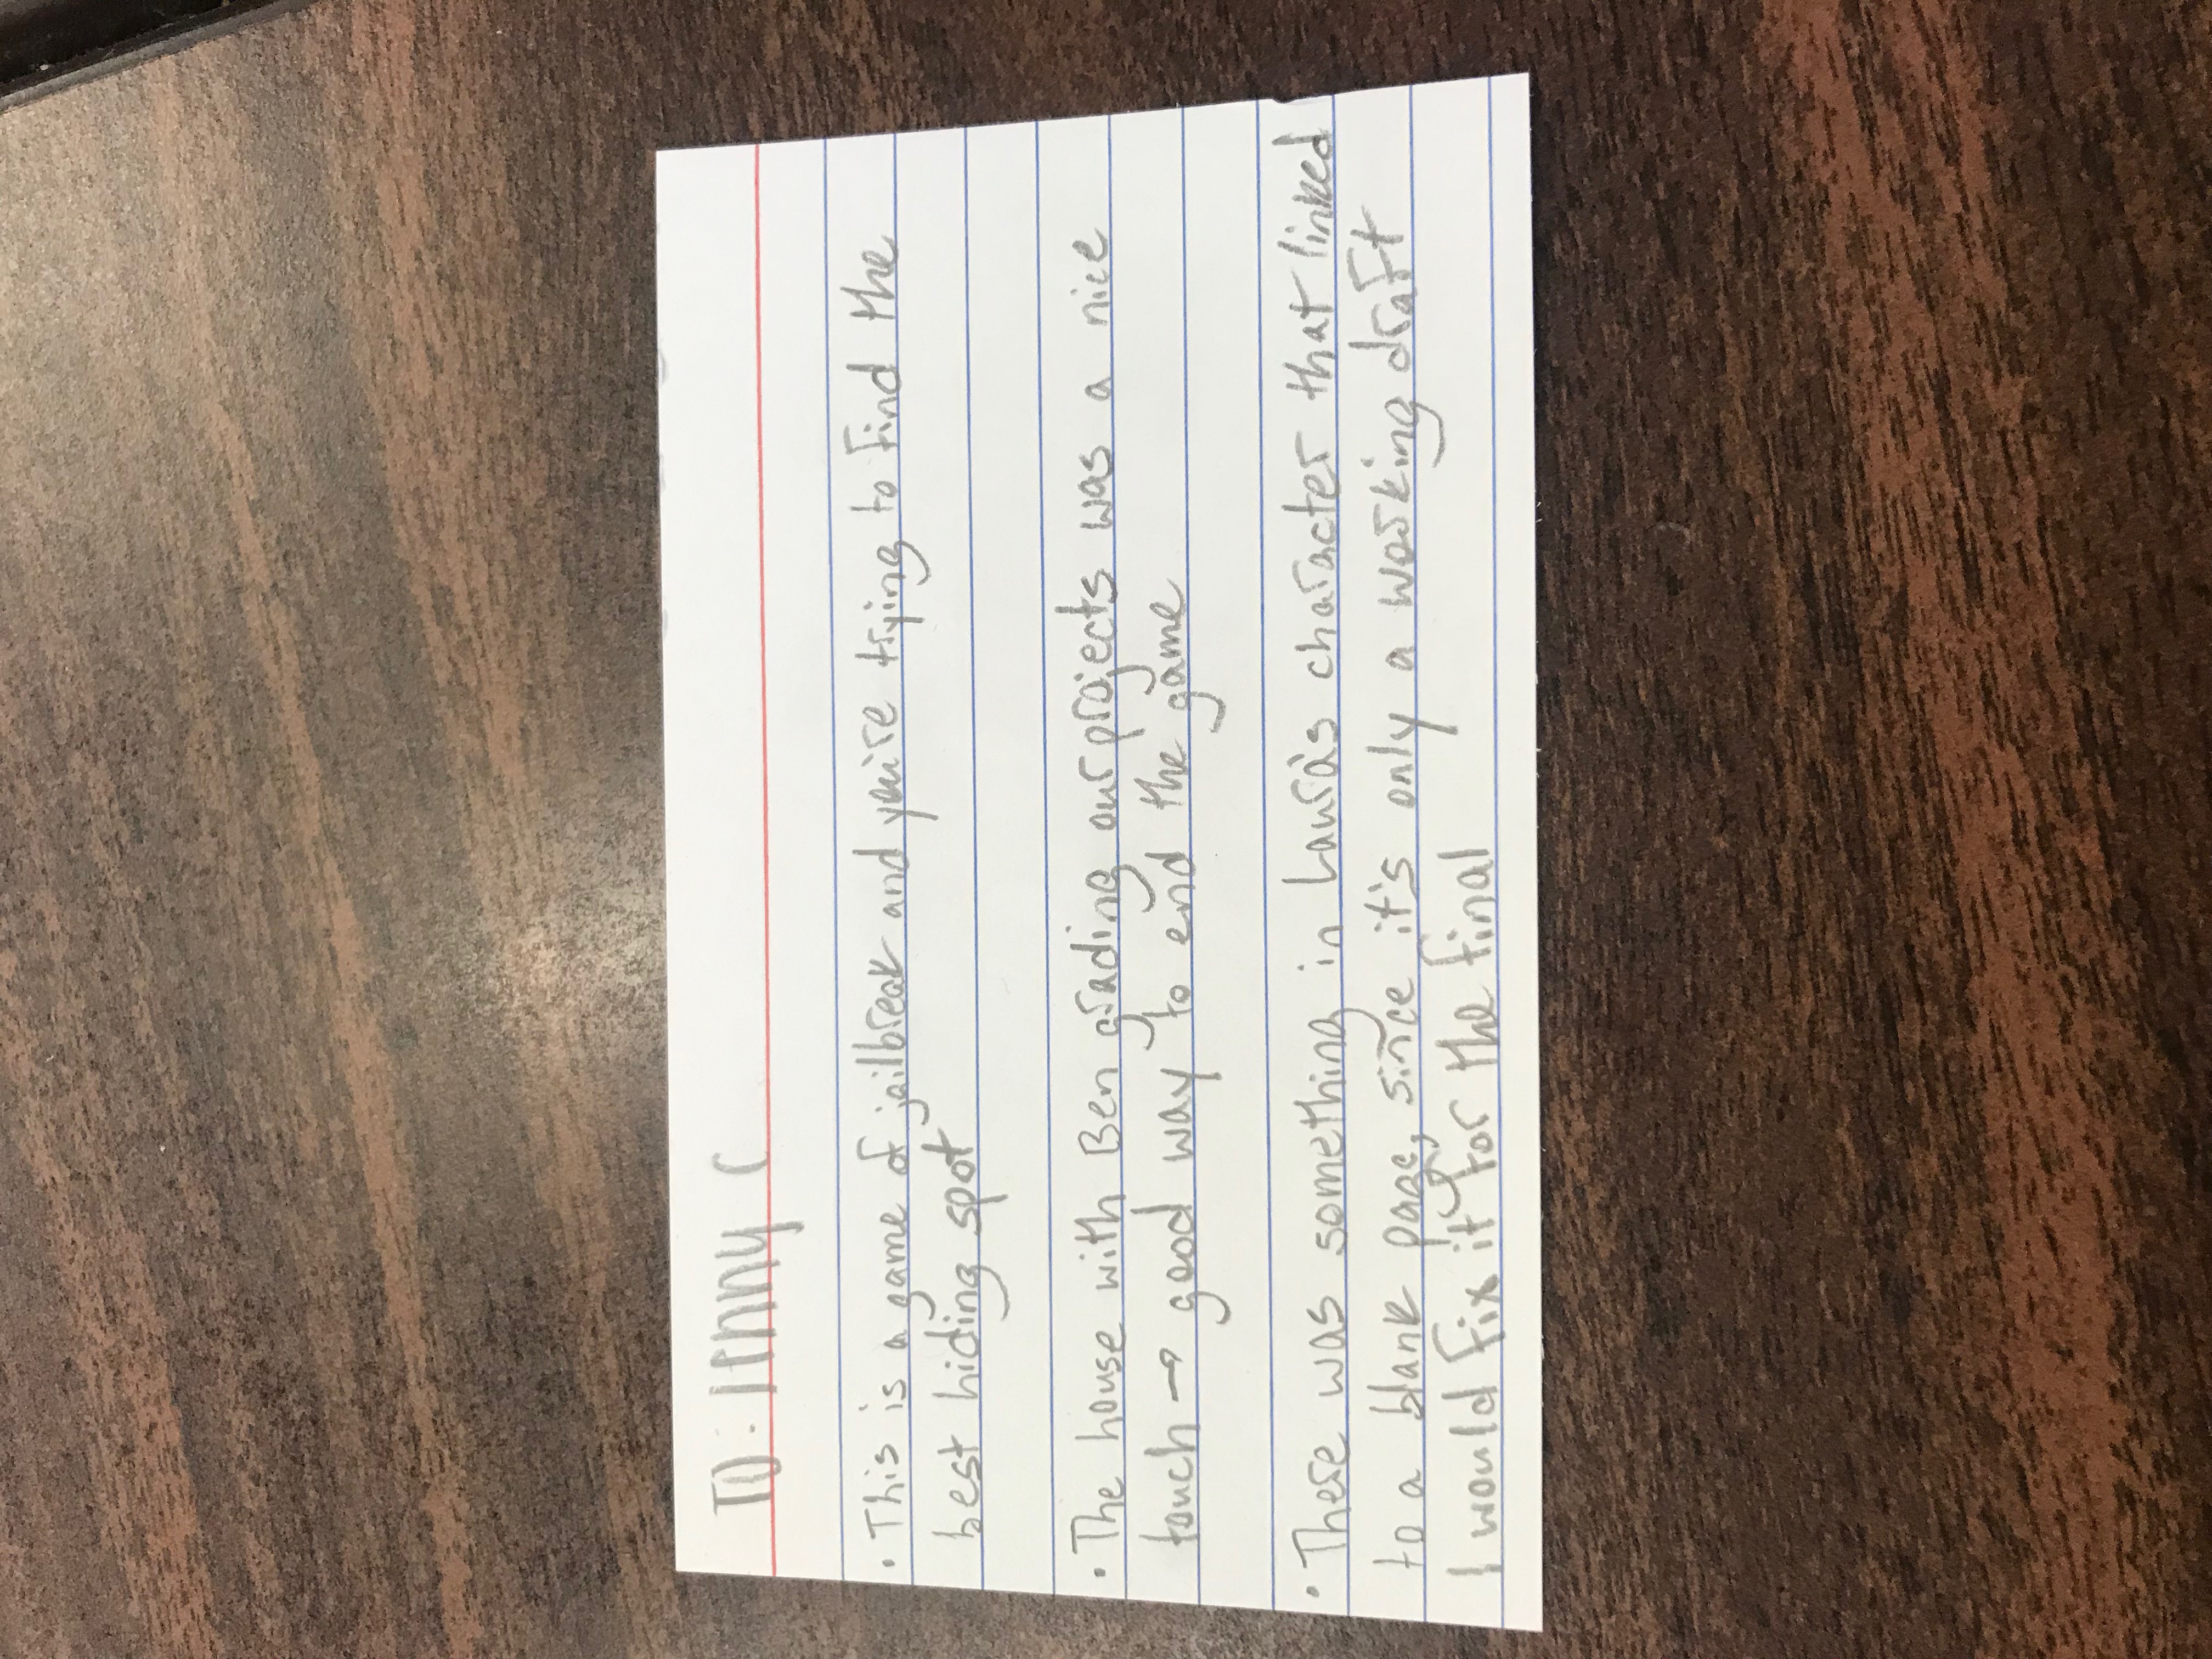 TO: Jenny C
• This is a game of jailbreak and you're trying to find the
best hiding spot
• The house with Ben grading our projects was a nice
touch → good way to end the game
• There was something in Laura's character that linked
to a blank page, since it's only a working draft
I would fix it for the final